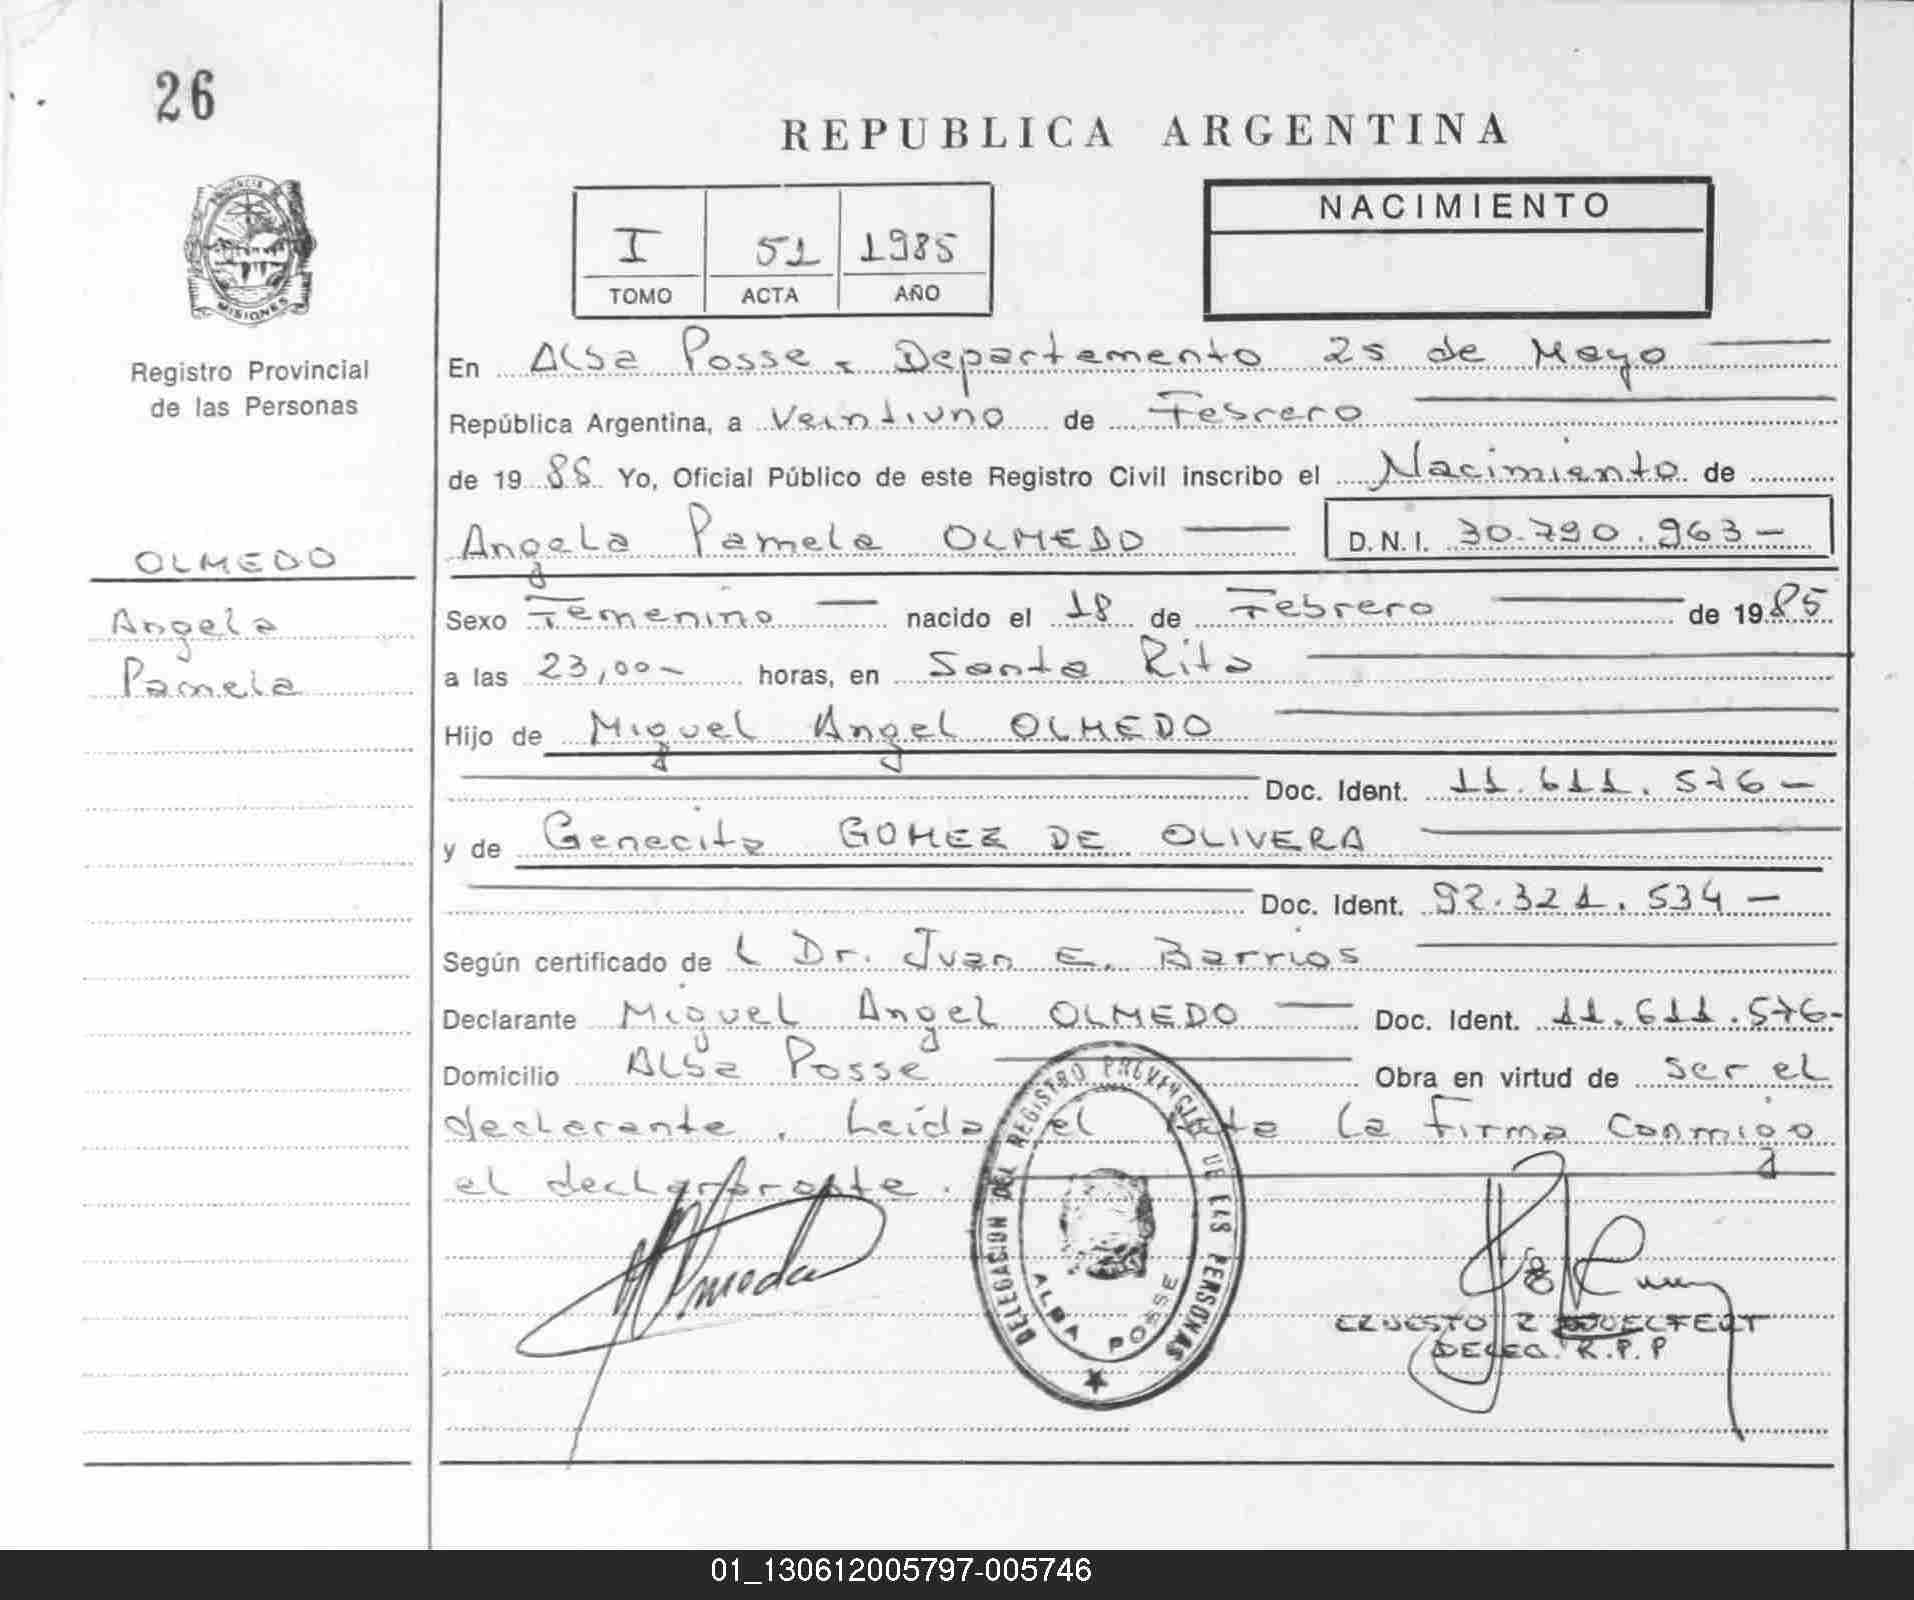 26
REPUBLICA ARGENTINA
PROVINCIA
MISIONES
Registro Provincial
de las Personas
I 51 1985
TOMO ACTA AÑO
NACIMIENTO
En Alba Posse, Departamento 25 de Mayo
República Argentina, a Veintiuno de Febrero
de 19 85 Yo, Oficial Público de este Registro Civil inscribo el Nacimiento de
Angela Pamela OLMEDO D.N.I. 30.790.963-
OLMEDO
Angela
Pamela
Sexo Femenino nacido el 18 de Febrero de 1985
a las 23,00- horas, en Santa Rita
Hijo de Miguel Angel OLMEDO
Doc. Ident. 11.611.576-
y de Genecita GOMEZ DE OLIVERA
Doc. Ident. 92.321.534-
Según certificado de l Dr. Juan E. Barrios
Declarante Miguel Angel OLMEDO Doc. Ident. 11.611.576-
Domicilio Alba Posse Obra en virtud de ser el
declarante. Leída el Acta la firma conmigo
el declarante.
DELEGACION DEL REGISTRO PROVINCIAL DE LAS PERSONAS
ALBA POSSE
ERNESTO R
DELEG. R.P.P
01_130612005797-005746